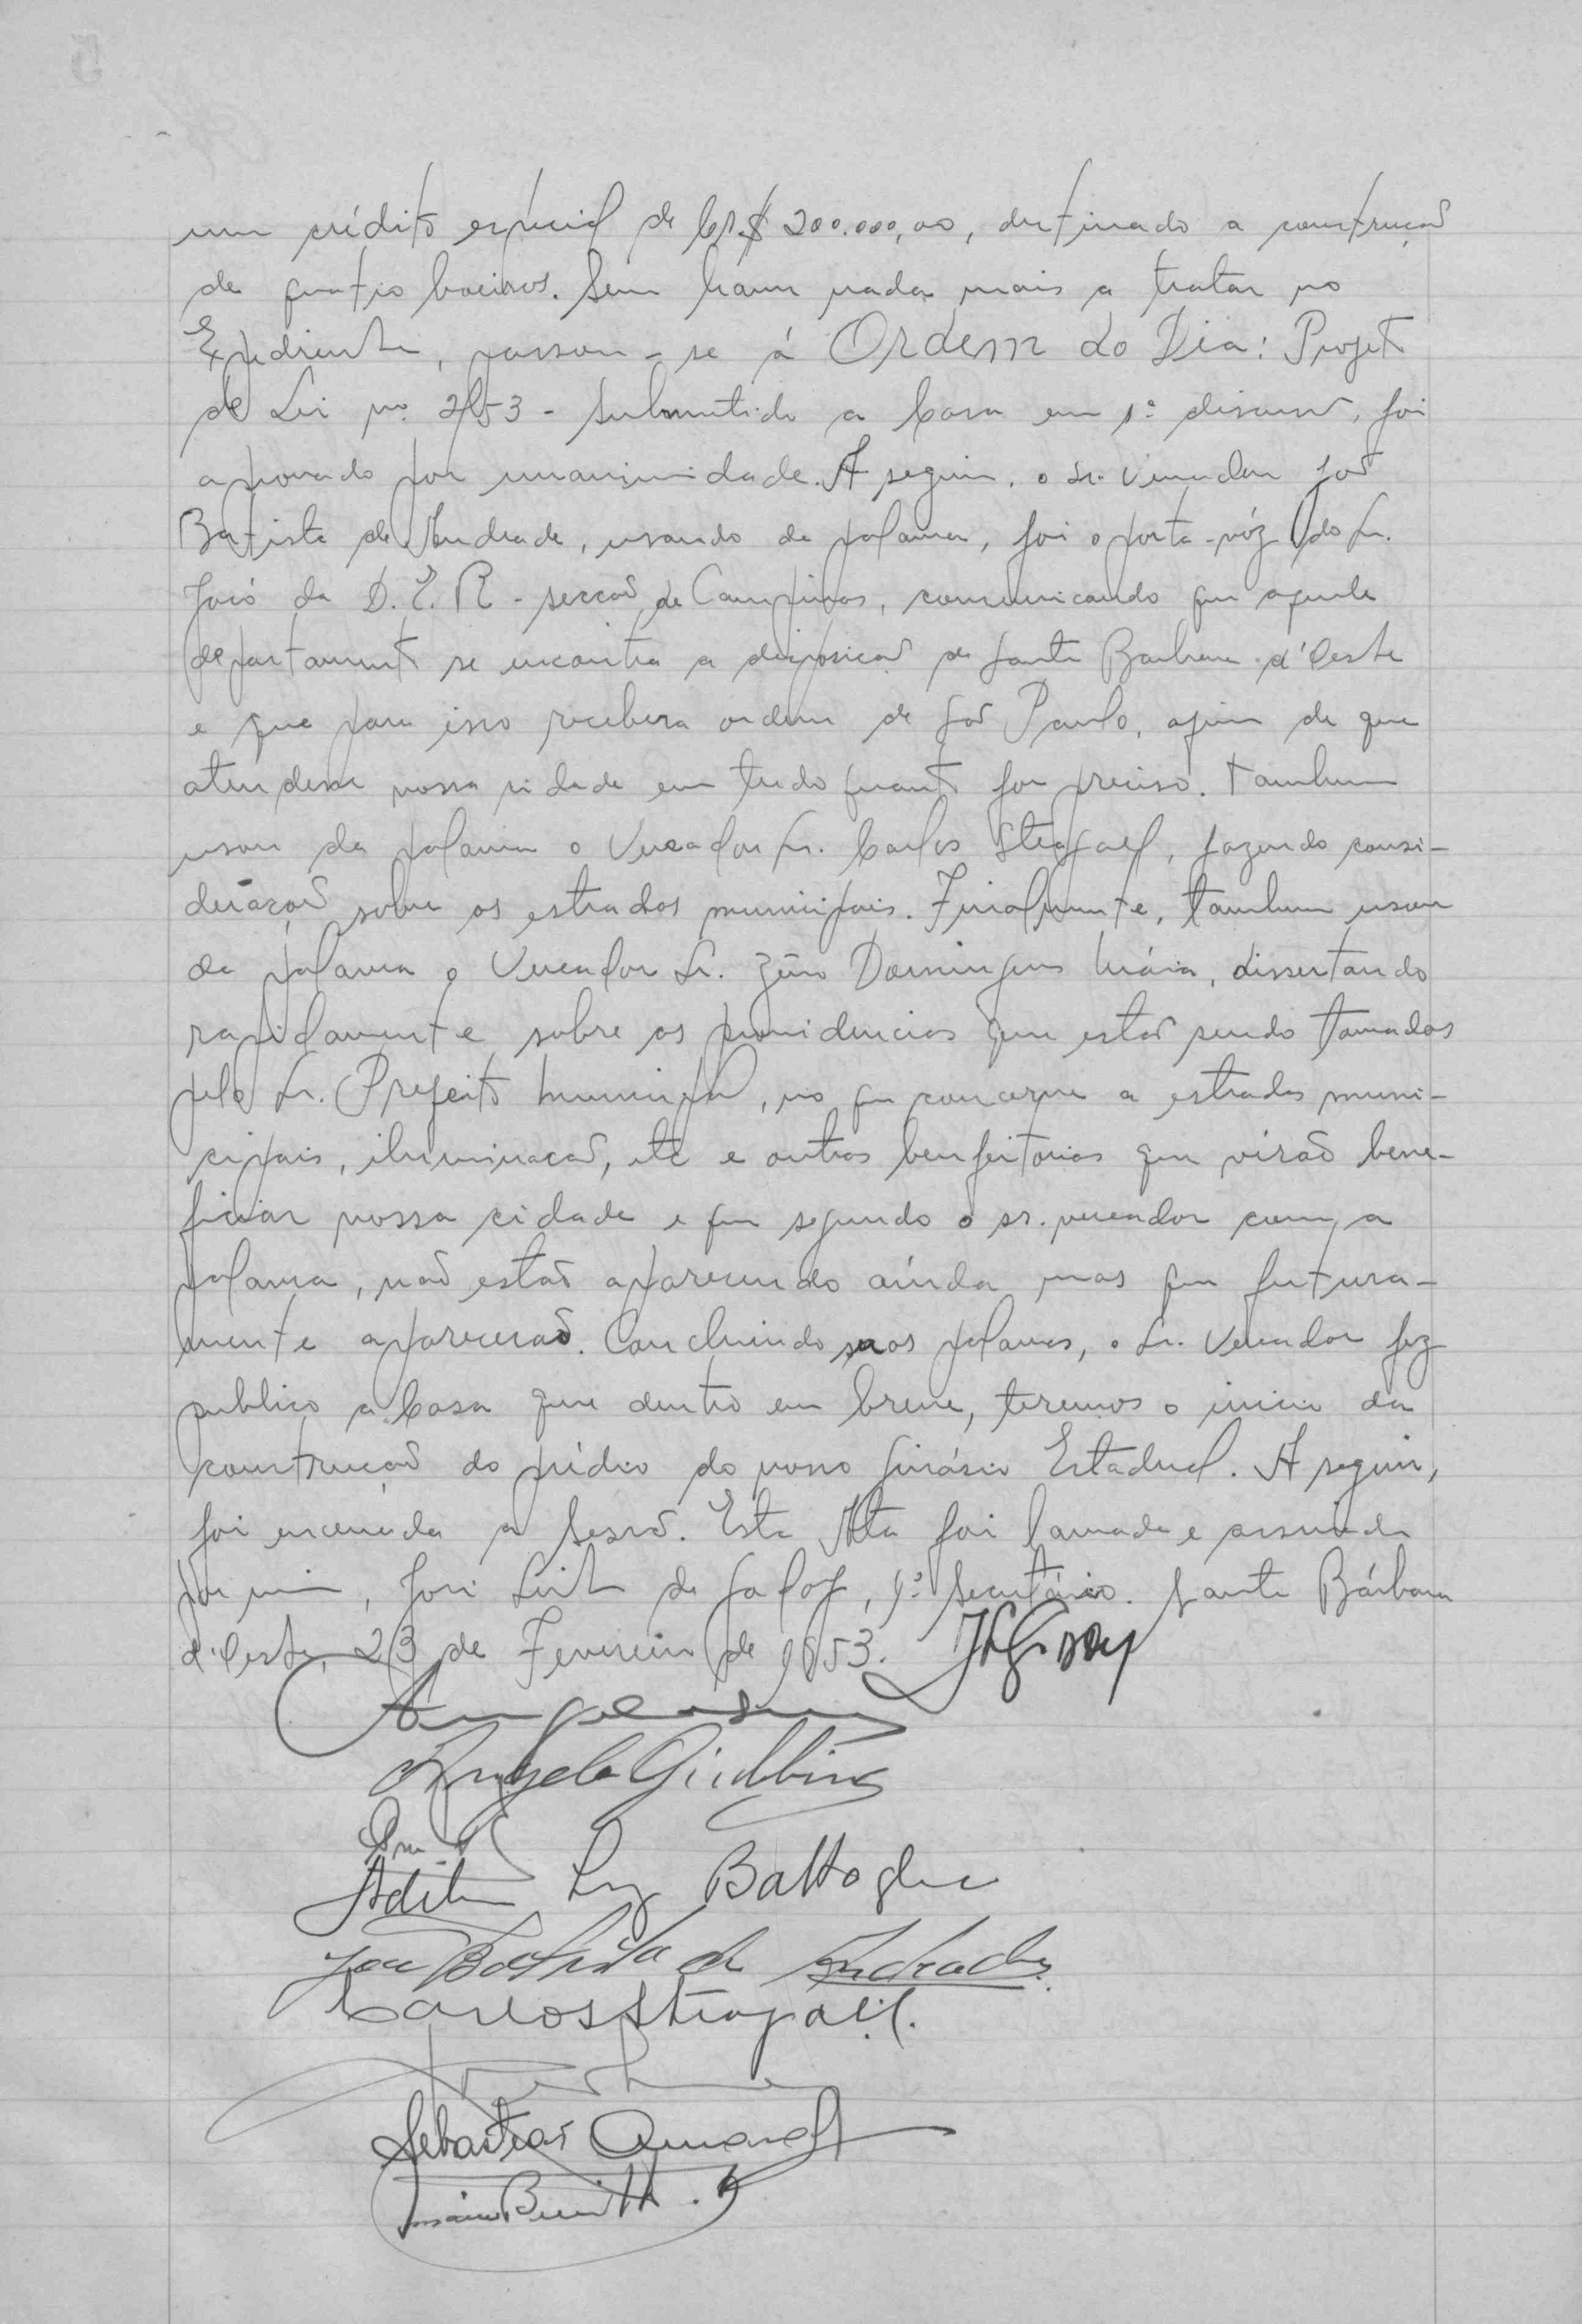 um crédito especial de Cr$ 200.000,00, destinado a construção
de quatro boeiros. Sem haver nada mais a tratar no
Expediente, passou-se á Ordem do Dia: Projeto
de Lei no. 2/53 - submetido a Casa em 1ª discussão, foi
aprovado por unanimidade. A seguir, o Sr. Vereador José
Batista de Andrade, usando da palavra, foi o porta-vóz do Sr.
da D.E.R - secção de Campinas, comunicando que aquele
departamento se encontra a disposição de Santa Barbara d'Oeste
e que para isso recebera ordem de São Paulo, afim de que
atendesse nossa cidade em tudo quanto for preciso. Tambem
usou da palavra o Vereador Sr. Carlos Steagall, fazendo consi-
deração sobre as estradas municipais. Finalmente, tambem usou
da palavra o Vereador Sr. Zêno Domingues Maia, dissertando
rapidamente sobre as providencias que estão sendo tomadas
pelo Sr. Prefeito Municipal, no que concerne a estradas muni-
cipais, iluminação, etc e outras benfeitorias que virão bene-
ficiar nossa cidade e que segundo o sr. vereador com a
palavra, não estão aparecendo aínda mas que futura-
mente aparecerão. Concluindo suas palavras, o Sr. Vereador fez
publico a Casa que dentro em breve, teremos o inicio da
construção do prédio do nosso Ginásio Estadual. A seguir,
foi encerrada a Sessão. Esta Ata foi lavrada e assinada
por mim, José Leite de 1º Secretário. Santa Bárbara
d'Oeste, 23 de Fevereiro de 1953.
Angelo Giubbina
Luz Battoglia
José Batista de Andrade
Carlos Steagall.
Sebastião